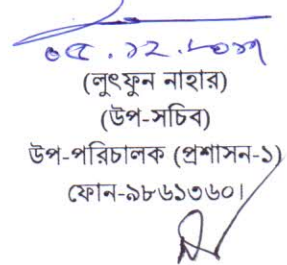 ০৫.১২.২০১৭
(লুৎফুন নাহার)
(উপ-সচিব)
উপ-পরিচালক (প্রশাসন-১)
ফোন-৯৮৬১৩৬০।